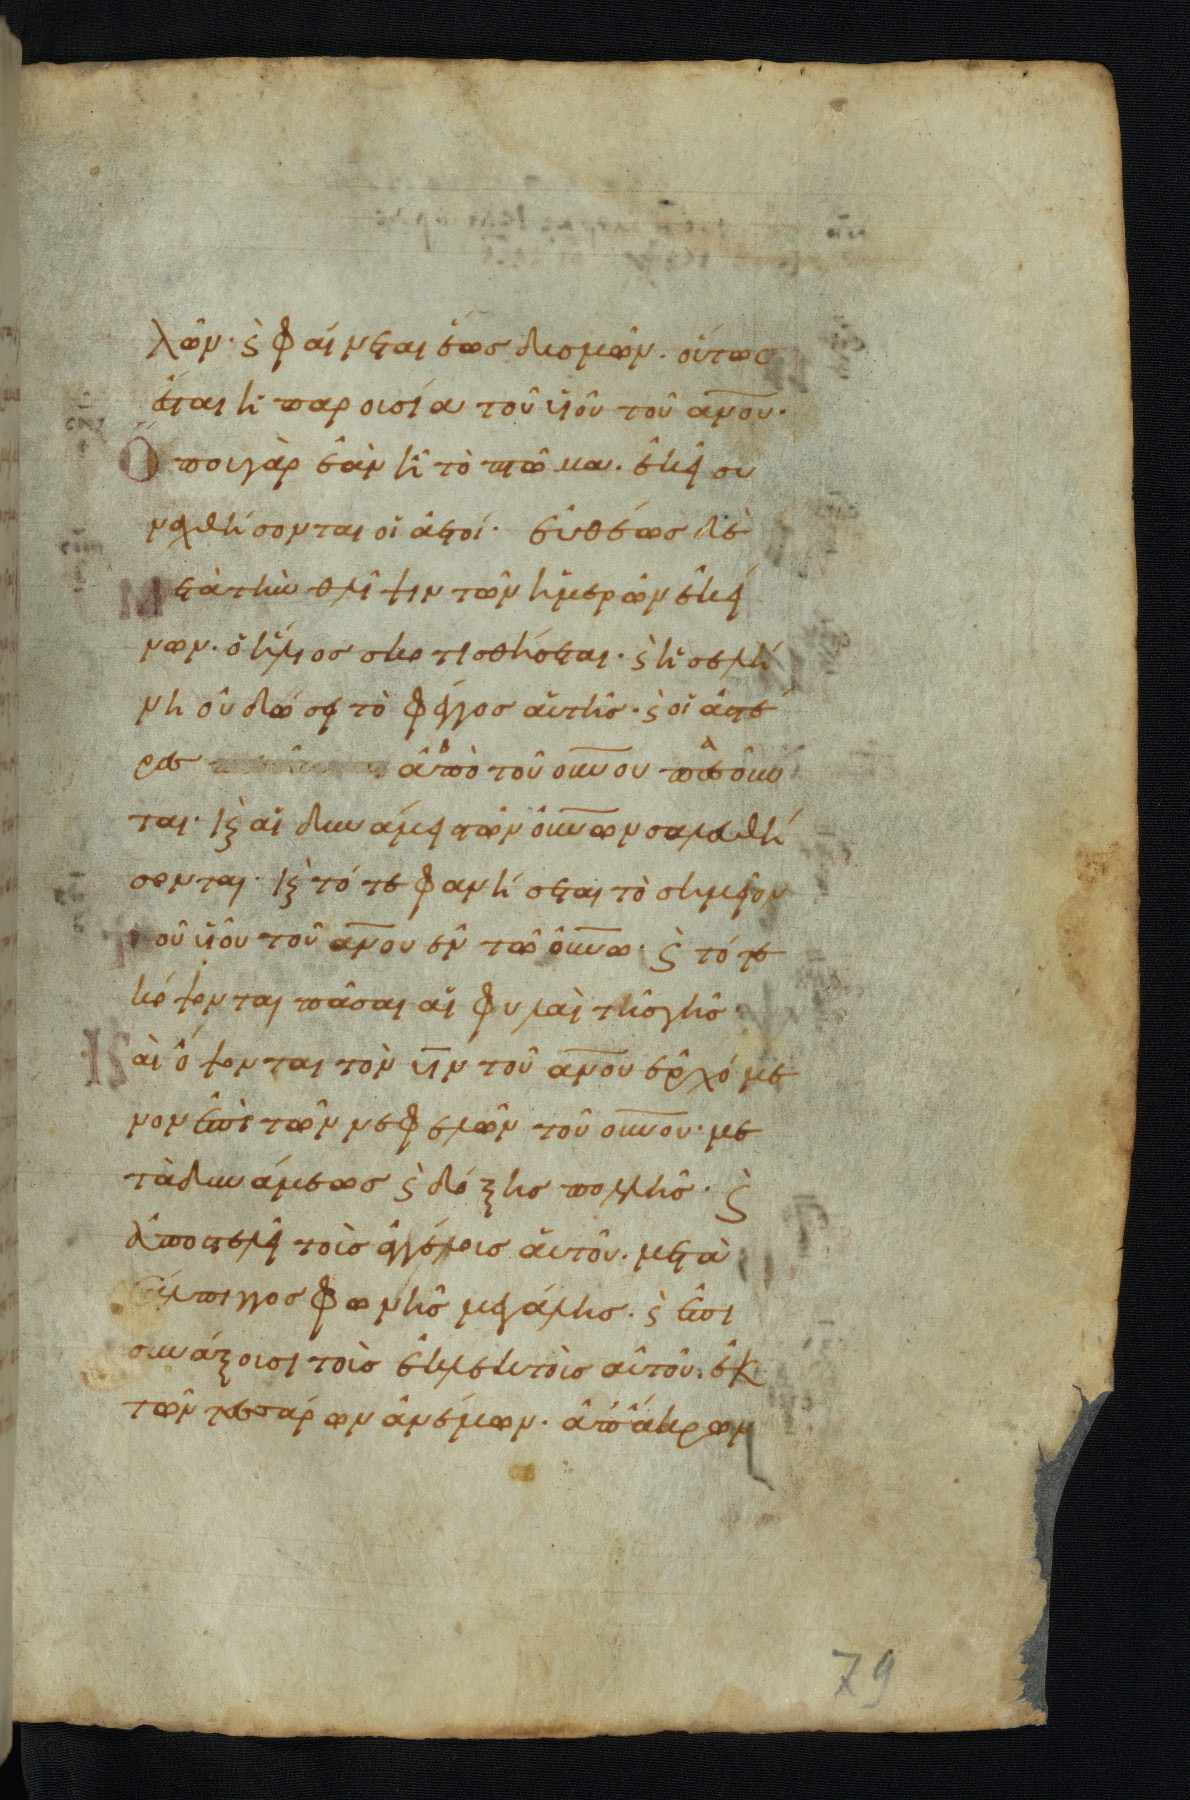 λῶν· ϗ φαίνεται ἕως δυσμῶν. οὕτως
ἔσται ἡ παρουσία τοῦ υἱοῦ τοῦ ἀνου·
Ὅπου γὰρ ἐὰν ἦ τὸ πτῶμα. ἐκεῖ συ
ναχθήσονται οἱ ἀετοί· εὐθέως δὲ
Μετὰ τὴν θλίψιν τῶν ἡμερῶν ἐκεί
νων. ὁ ἥλιος σκοτισθήσεται· ϗ ἡ σελή
νη οὐ δώσει τὸ φέγγος αὐτῆς· ϗ οἱ ἀστέ
ρες ἀπὸ τοῦ οὐνου πεσοῦν
ται· κϗ αἱ δυνάμεις τῶν οὐνων σαλευθή
σονται· κϗ τότε φανήσεται τὸ σημεῖον
τοῦ υἱοῦ τοῦ ἀνου ἐν τῶ οὐνω· ϗ τότε
κόψονται πᾶσαι αἱ φυλαὶ τῆς γῆς·
Καὶ ὄψονται τὸν υἱν τοῦ ἀνου ἐρχόμε
νον ἐπὶ τῶν νεφελῶν τοῦ οὐνου· με
τὰ δυνάμεως ϗ δόξης πολλῆς· ϗ
ἀποστελεῖ τοὺς ἀγγέλους αὐτοῦ. μετὰ
σάλπιγγος φωνῆς μεγάλης. ϗ ἐπι
συνάξουσι τοὺς ἐκλεκτοὺς αὐτοῦ. ἐκ
τῶν τεσσάρων ἀνέμων. ἀπ' ἄκρων
79